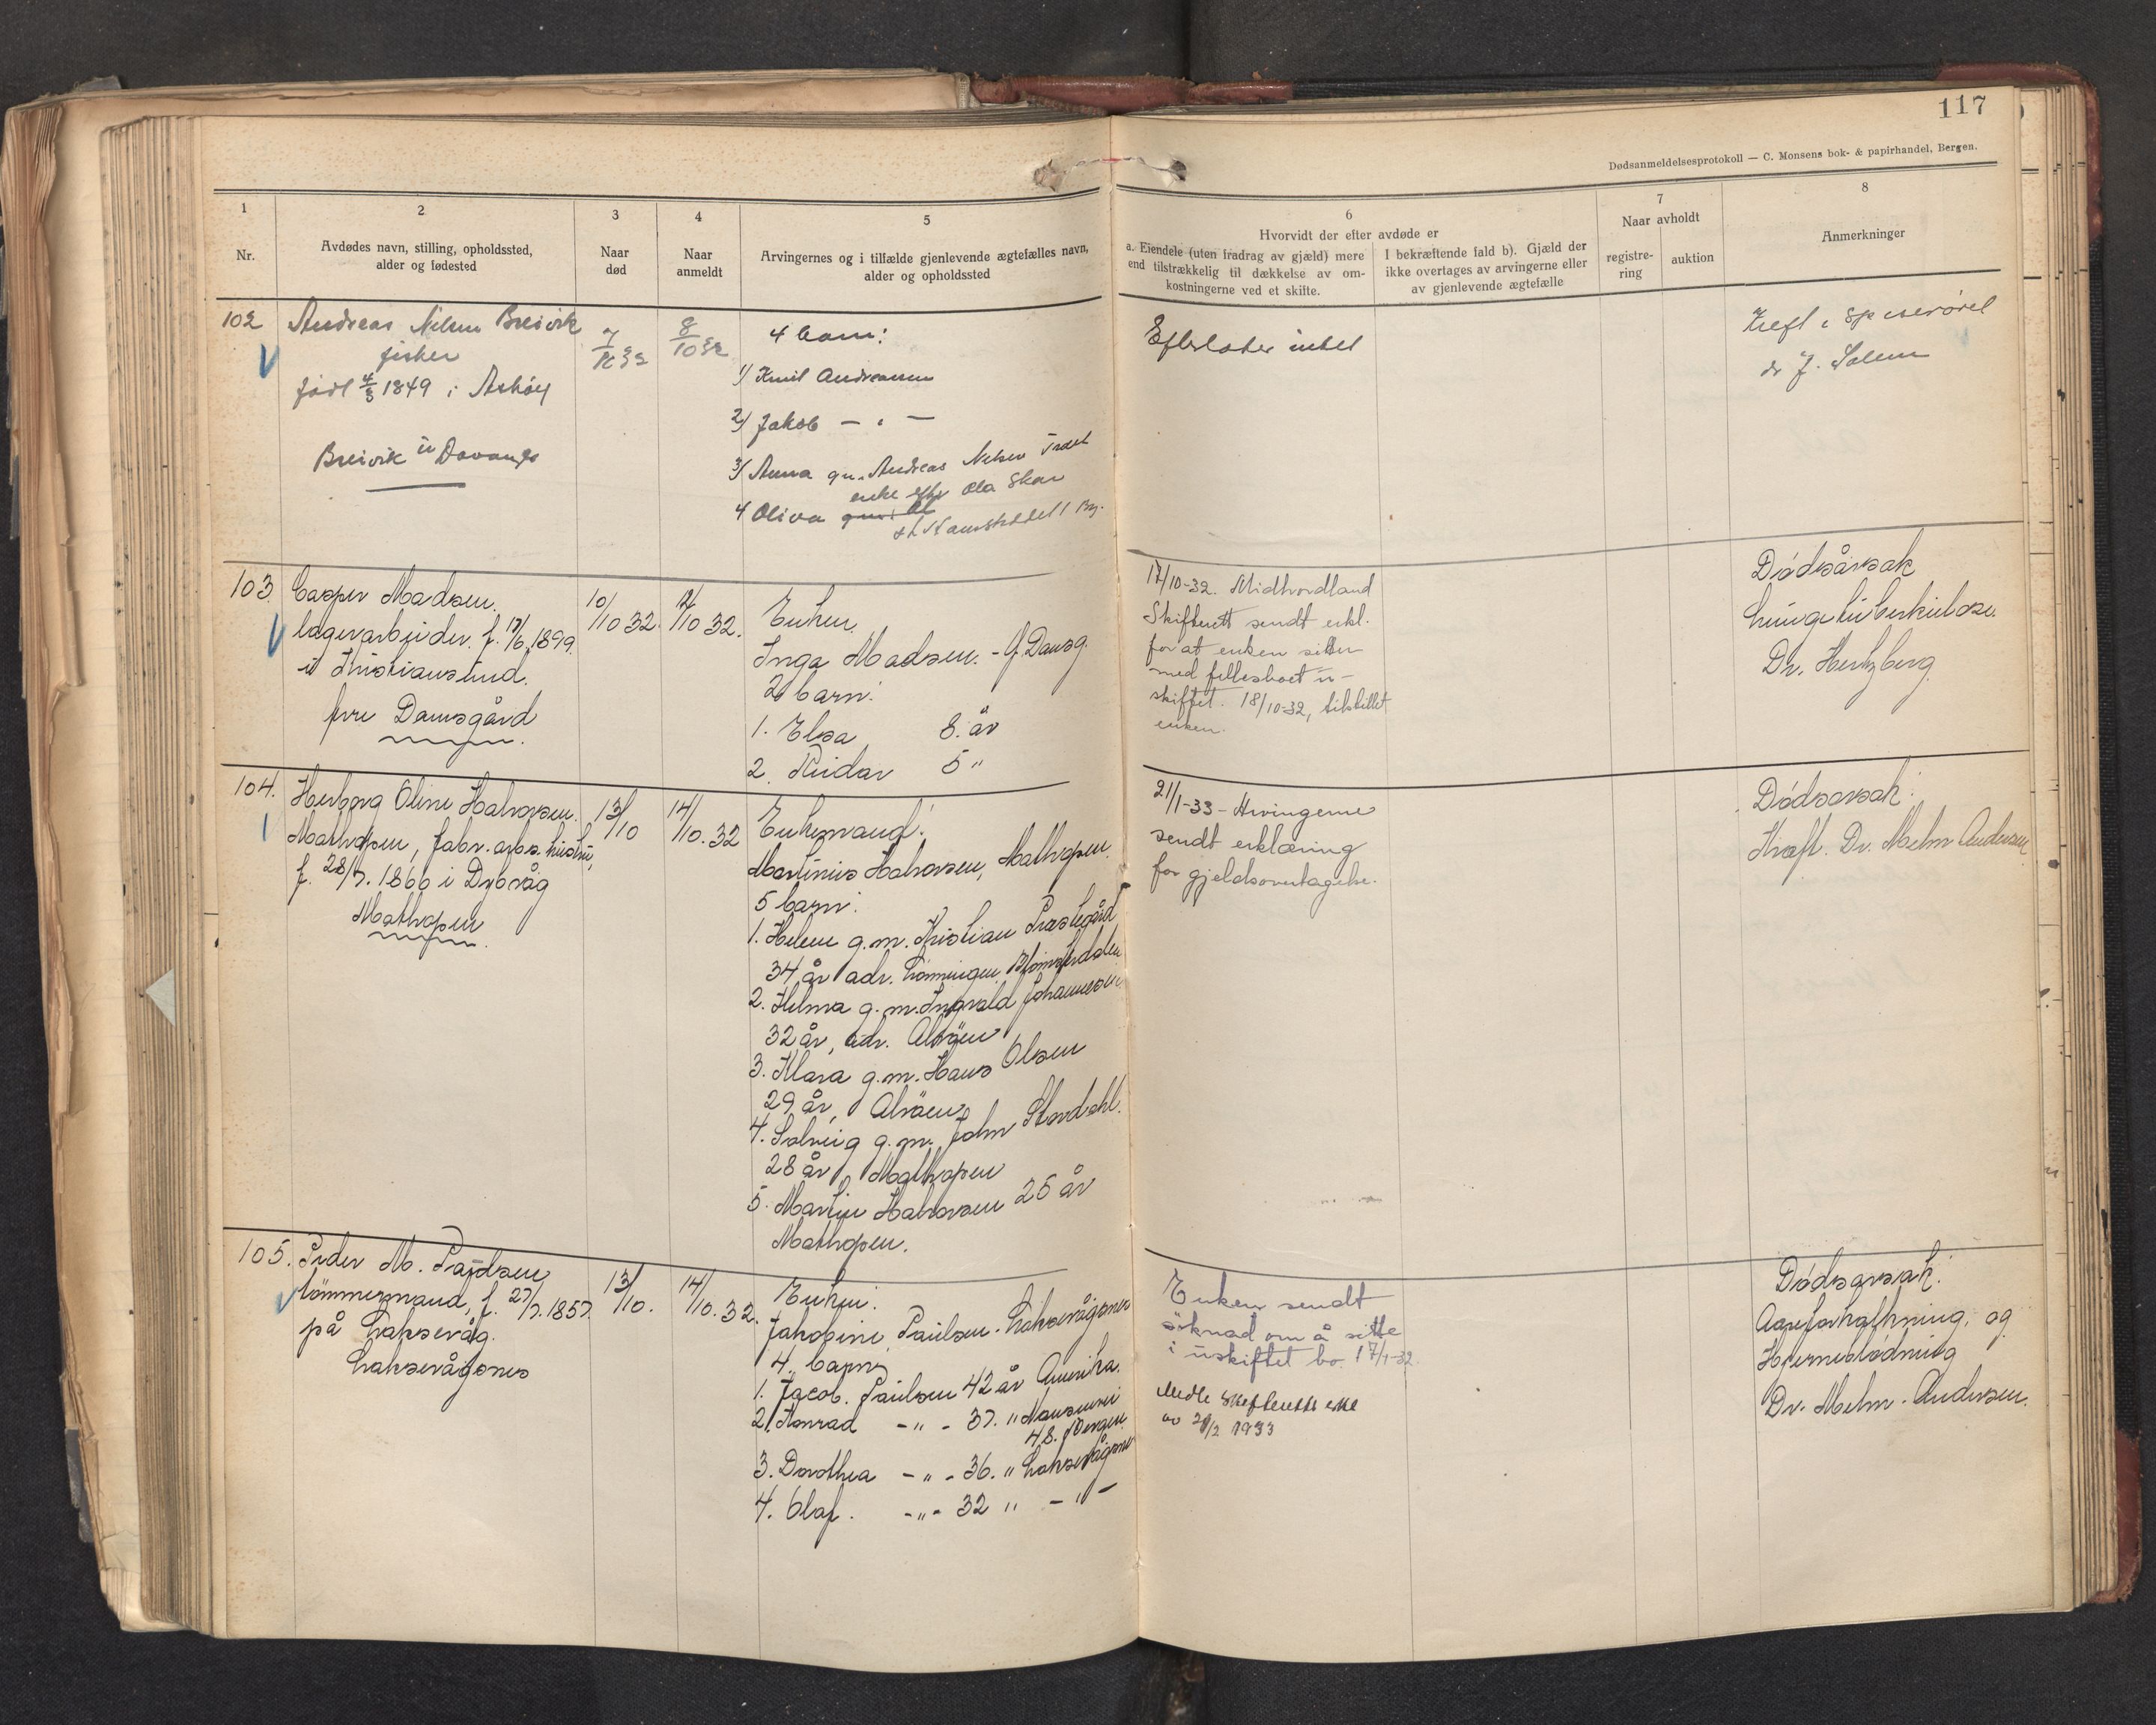 117
Dødsanmeldelsesprotokoll — C. Monsens bok- & papirhandel, Bergen.
1
Nr.
2
Avdødes navn, stilling, opholdssted,
alder og fødested
3
Naar
død
4
Naar
anmeldt
5
Arvingernes og i tilfælde gjenlevende ægtefælles navn,
alder og opholdssted
6
Hvorvidt der efter avdøde er
a. Eiendele (uten fradrag av gjæld) mere
end tilstrækkelig til dækkelse av om-
kostningerne ved et skifte.
I bekræftende fald b). Gjæld der
ikke overtages av arvingerne eller
av gjenlevende ægtefælle
7
Naar avholdt
registre-
ring
auktion
8
Anmerkninger
102
Andreas Nilsen Breivik
fisker
født 4/3 1849 i Askøy
Breivik Davanger
7/10 32
8/10 32
4 barn:
1) Emil Andreassen
2) Jakob — " —
3) Anna gm. Andreas Nilsen
enke efter Ola Skar
4 Oliva
Efterlater intet
Kreft i spiserøret
dr J. Solem
103.
Casper Madsen.
lagerarbeider. f. 17/6 1899.
i Kristiansund.
øvre Damsgård
10/10 32.
12/10 32.
Enken
Inga Madsen. - Ø. Damsg.
2 barn:
1. Elsa 8. år
2. Reidar 5 "
17/10-32. Midhordland
Skifterett sendt erkl.
for at enken sitter
med fellesboet u-
skiftet. 18/10-32, tilstillet
enken.
Dødsårsak
Lungetuberkulose.
Dr. Hertzberg
104.
Herborg Oline Halvorsen.
Mathopen, fabr. arb. hustru,
f. 28/7. 1866 i Dybvåg
Mathopen
13/10
14/10. 32
Enkemand:
Martinius Halvorsen, Mathopen.
5 barn:
1. Helene g.m. Kristian Præstegård
34 år adr. Lønningen Blomsterdalen
2. Helma g.m. Ingvald Johannesen
32 år, adr. Alvøen
3. Klara g.m. Hans Olsen
29 år, Alvøen
4. Solveig g.m. John Stordahl.
28 år, Mathopen
5. Martin Halvorsen 25 år
Mathopen.
21/1-33 - Arvingerne
sendt erklæring
for gjeldsovertagelse.
Dødsarsak:
Kræft. Dr. Mehn Andersen
105.
Peder M. Paulsen
tömmermand, f. 27/7. 1857.
på Laksevåg.
Laksevågsnes
13/10.
14/10. 32.
Enken:
Jakobine Paulsen. Laksevågsnes
4 barn
1. Jacob. Paulsen 42 år Amerika.
2. Konrad - " - 37. " Nansenvei
48. Bergen
3. Dorothea - " - 36. " Laksevågsnes
4. Olaf. - " - 32 " - " -
Enken sendt
söknad om å sitte
i uskiftet bo. 17/1-32.
Medl. Skifterettens erkl
av 20/2 1933
Dødsarsak:
Aareforkalkning, og
Hjerneblødning
Dr. Mehn. Andersen.